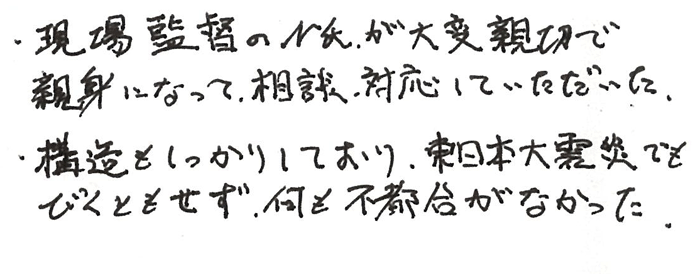 ・現場監督のN氏.が大変親切で
親身になって、相談、対応していただいた.
・構造もしっかりしており、東日本大震災でも
びくともせず、何も不都合がなかった.